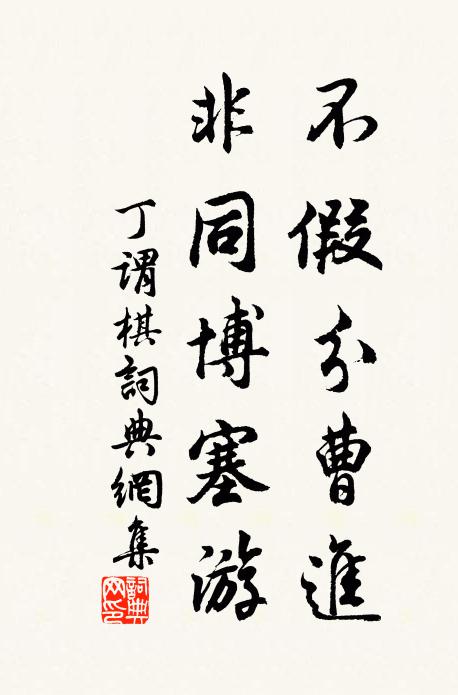 不假分曹進
非同博塞游
丁謂棋詞典網集
詞典網印